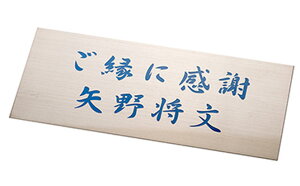 ご縁に感謝
矢野将文